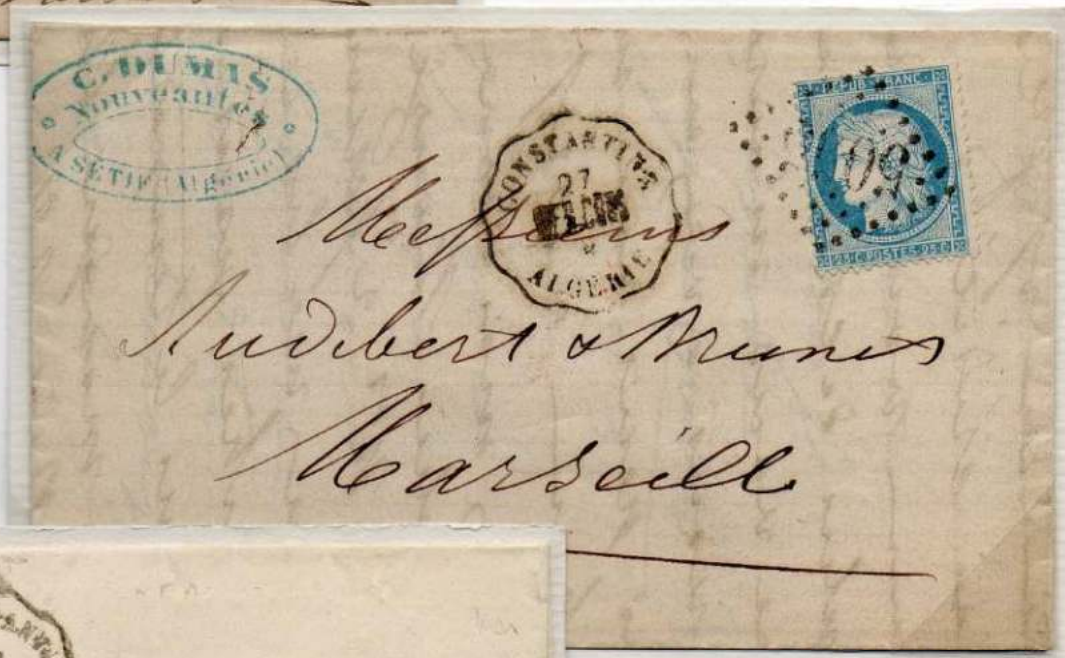 C. DUMAS
Nouveautés
A SÉTIF (Algérie)
CONSTANTINE
27
ALGERIE
REPUB. FRANC.
50
25 C. POSTES 25 C.
Messieurs
Audibert & Brunes
Marseille